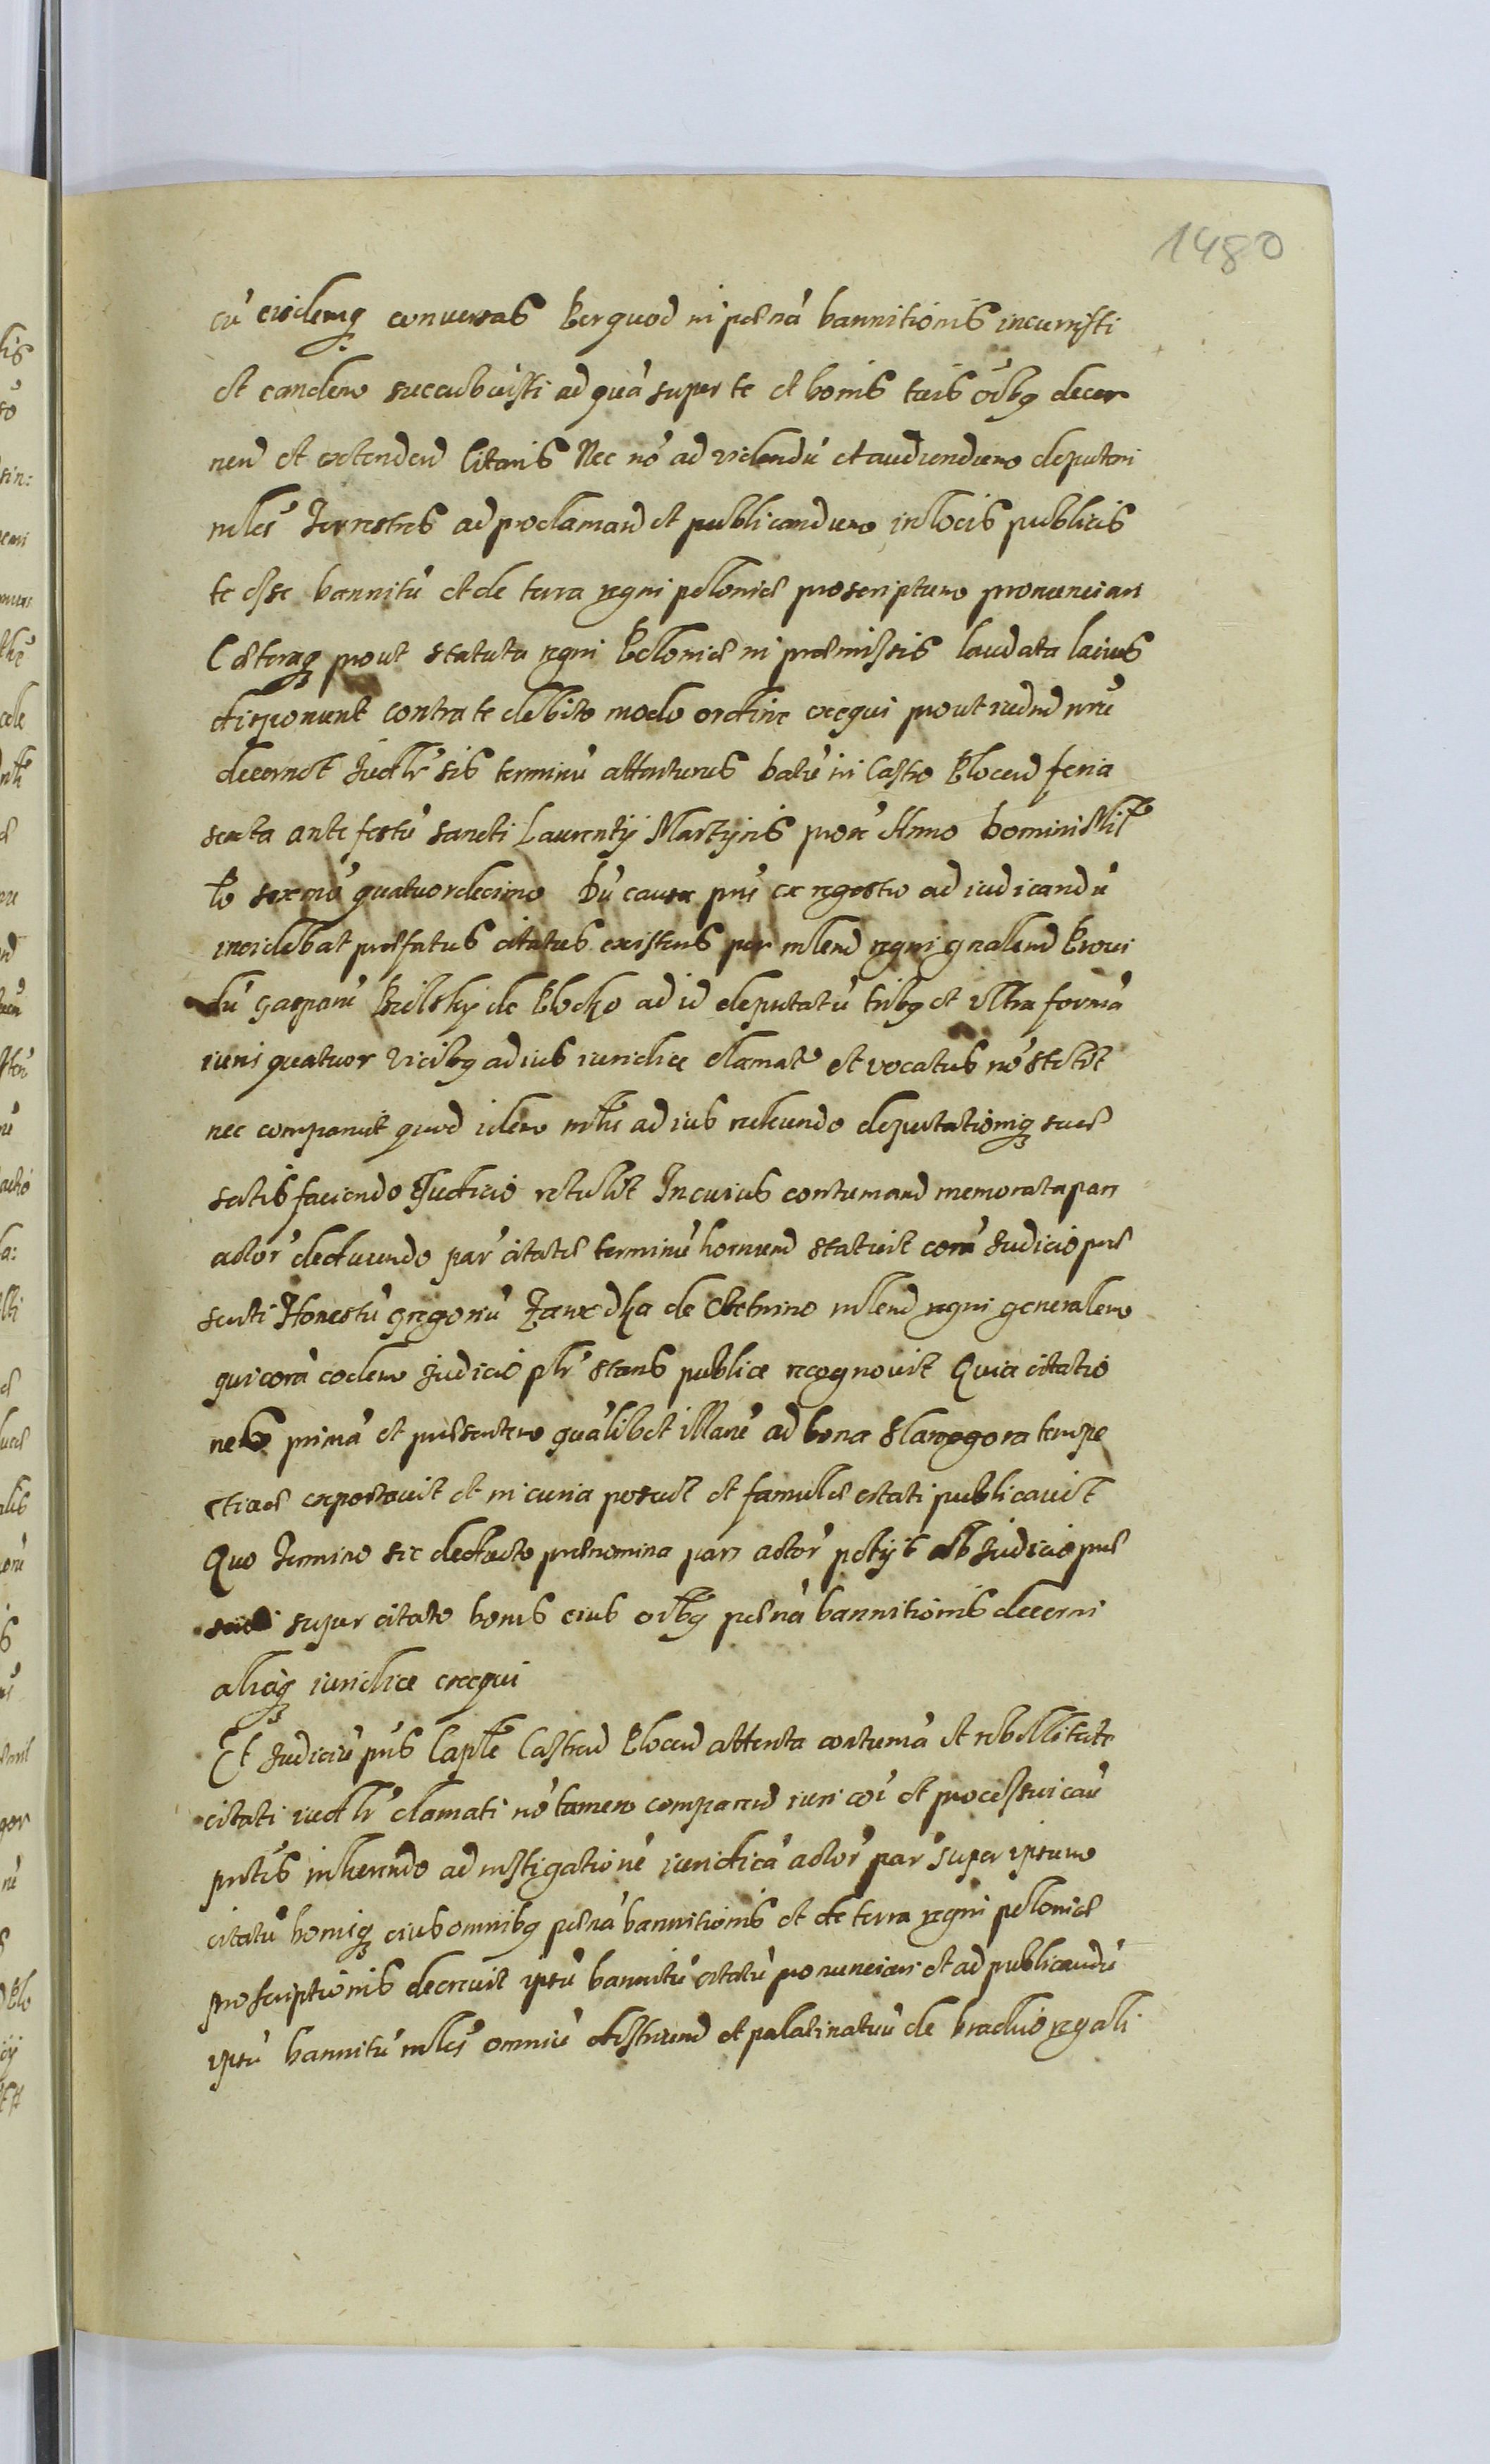 1480
cù eisdemq conversas Per quod in pœnà bannitionis incurristi
et eandem succubuisti ad quà super te et bonis tuis oĩbq decer
nend et extendend Citaris Nec nò ad videndù et audiendum deputari
mlès Terrestres ad proclamand et publicandum in locis publicis
te esse bannitù et de terra regni poloniæ proscriptum pronunciari
Cæteraq prout statuta regni Poloniæ in præmissis laudata latius
disponunt contra te debito modo ordine exequi prout iudm
decernet Iudlr sis terminù attenturus Datù in Castro Plocen feria
sexta ante festù sancti Laurentÿ Martÿris prox Anno Domini Mill
lo sexcmò quatuordecimo Dù causa pns ex regestro ad iudicandù
incidebat præfatus citatus existens per mlem regni gnalem Provi
dù Gasparù Bielskÿ de Plocko ad id deputatù tribq et ultra formà
iuris quatuor vicibq ad ius iuridice clamatq et vocatus nò stetit
nec comparuit quod idem mlis ad ius redeundo deputationiq suæ
satisfaciendo Iudicio retulit In cuius contumand memorata pars
actor decturendo par citatæ terminù hornum statuit corà Iudicio præ
senti Honestù gregoriù de mlem regni generalem
qui corà eodem Iudicio plr stans publice recognovit Quia citatio
nem primà et præsentem quàlibet illarù ad bona Slarogora tempe
stivæ exportavit et in curia posuit et famulæ citati publicavit
Quo Termino sic dectacto prænomina pars actor petÿt ab Iudicio præ
senti super citato bonis eius oibq pœnà bannitionis decerni
aliaq iuridice exequi
Et Iudiciù pns Captle Castrend Plocen attenta contumà et rebellitate
citati iudlr clamati nò tamen comparend iuri coi et processui caù
pntis inherendo ad instigationè iuridicà actor par super ipsum
citatù bonisq eius omnibq pœnà bannitionis et de terra regni poloniæ
proscriptionis decrevit ipsù bannitù citatù pronunciari et ad publicandù
ipsù bannitù mlès omniù districtuu et palatinatuù de brachio regali